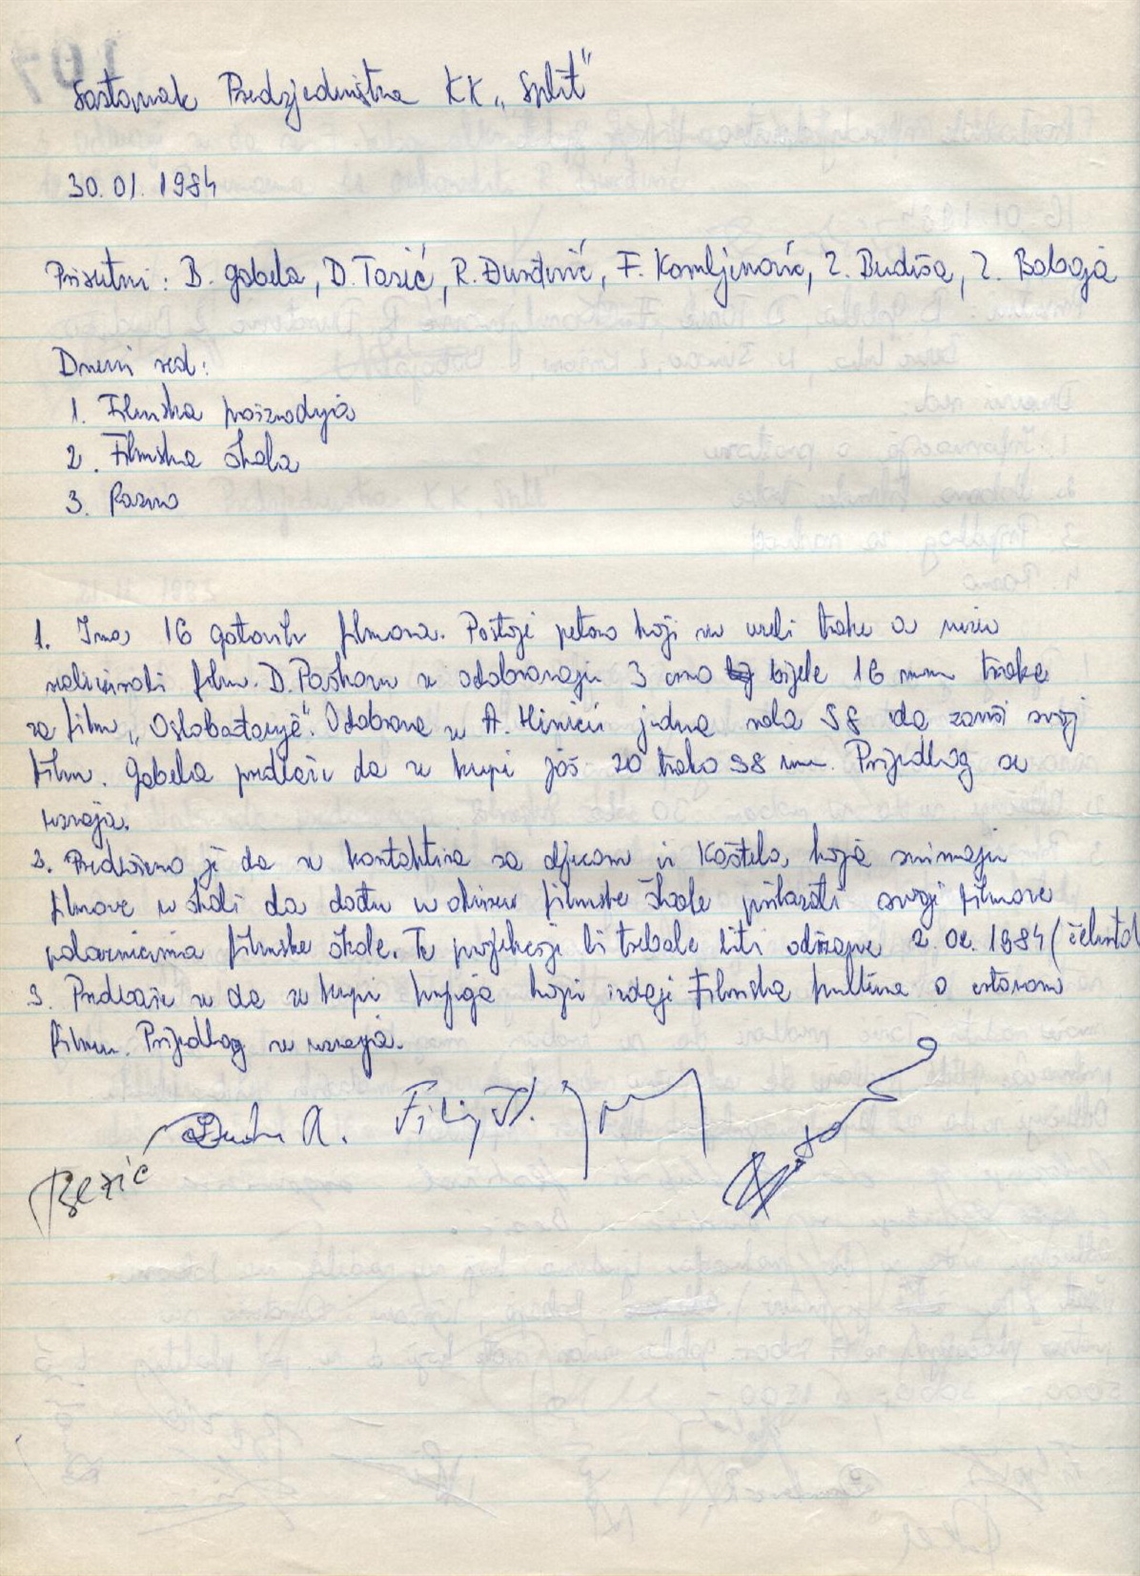 Sastanak Predsjedništva KK „Split"
30.01.1984
Prisutni: B. Gabela, D. Tasić, R. Đunđević, F. Komljenović, Z. Budiša, Z. Boboja
Dnevni red:
1. Filmska proizvodnja
2. Filmska škola
3. Razno
1. Ima 16 gotovih filmova. Postoji petero koji su uzeli trake a nisu
realizirali film. D. Poshovu se odobravaju 3 crno bijele 16 mm trake
za film „Oslobađanje". Odobrena je A. Hiniću jedna rola S8 da završi svoj
film. Gabela predlaže da se kupi još 20 traka S8 mm. Prijedlog se
usvaja.
2. Predloženo je da se kontaktira sa djecom iz Kaštela, koja snimaju
filmove u školi da dođu u okviru filmske škole prikazati svoje filmove
polaznicima filmske škole. Te projekcije bi trebale biti održane 2.02.1984 (
3. Predlaže se da se kupi knjiga koju izdaje Filmska kultura o crtanom
filmu. Prijedlog se usvaja.
Bezić